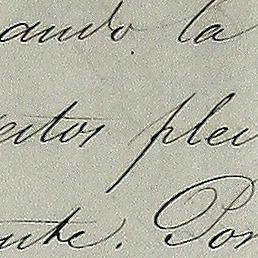 ando la
atos plei
nte. Por